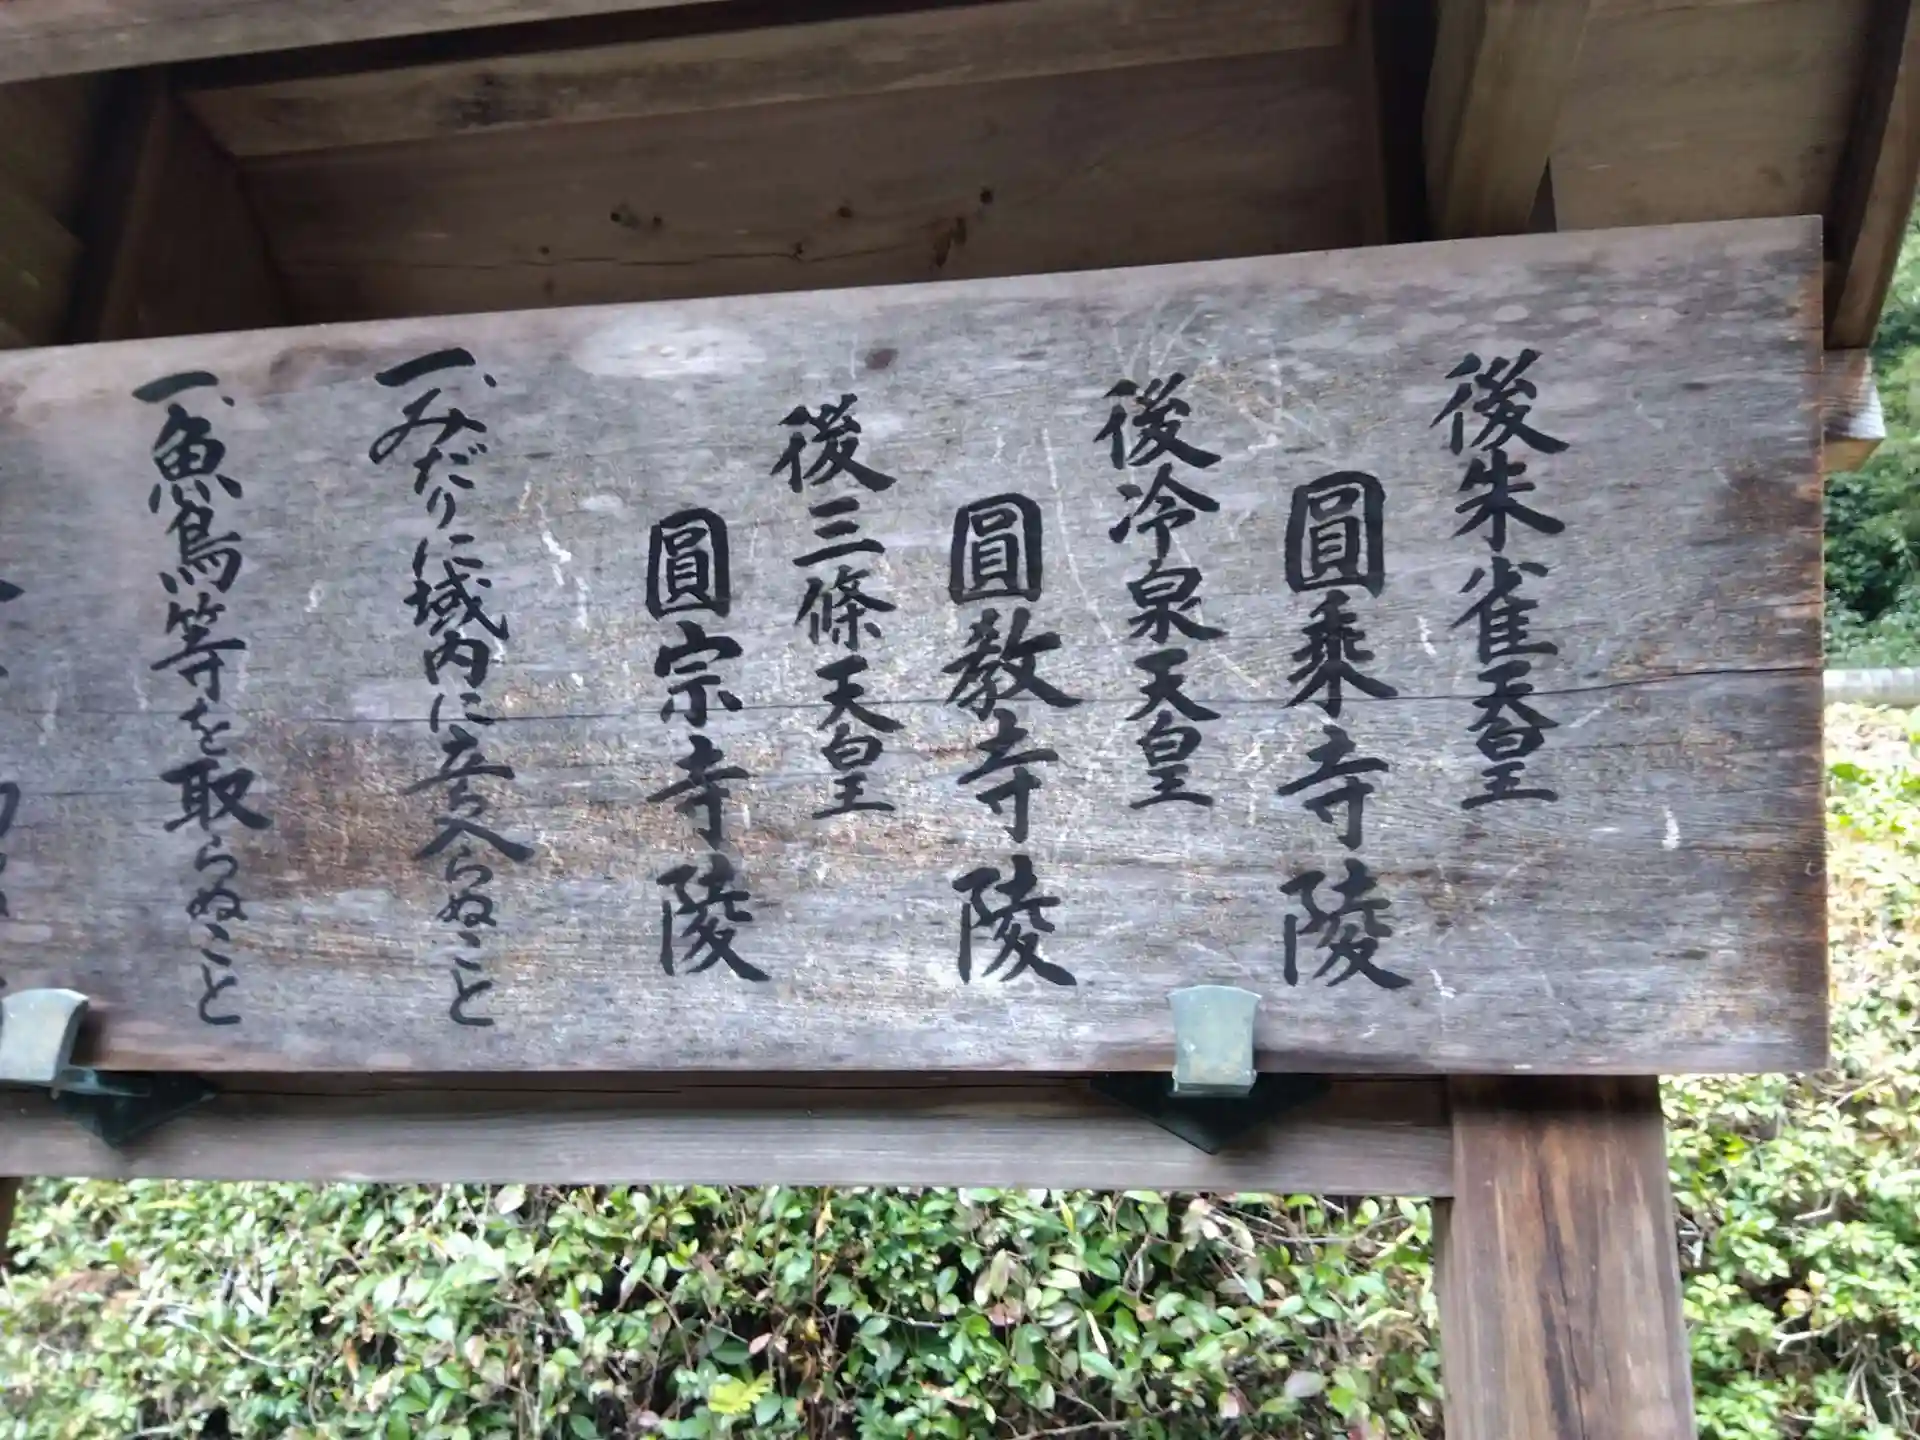 後朱雀天皇
圓乗寺陵
後冷泉天皇
圓教寺陵
後三條天皇
圓宗寺陵
一、みだりに域内に立ち入らぬこと
一、魚鳥等を取らぬこと